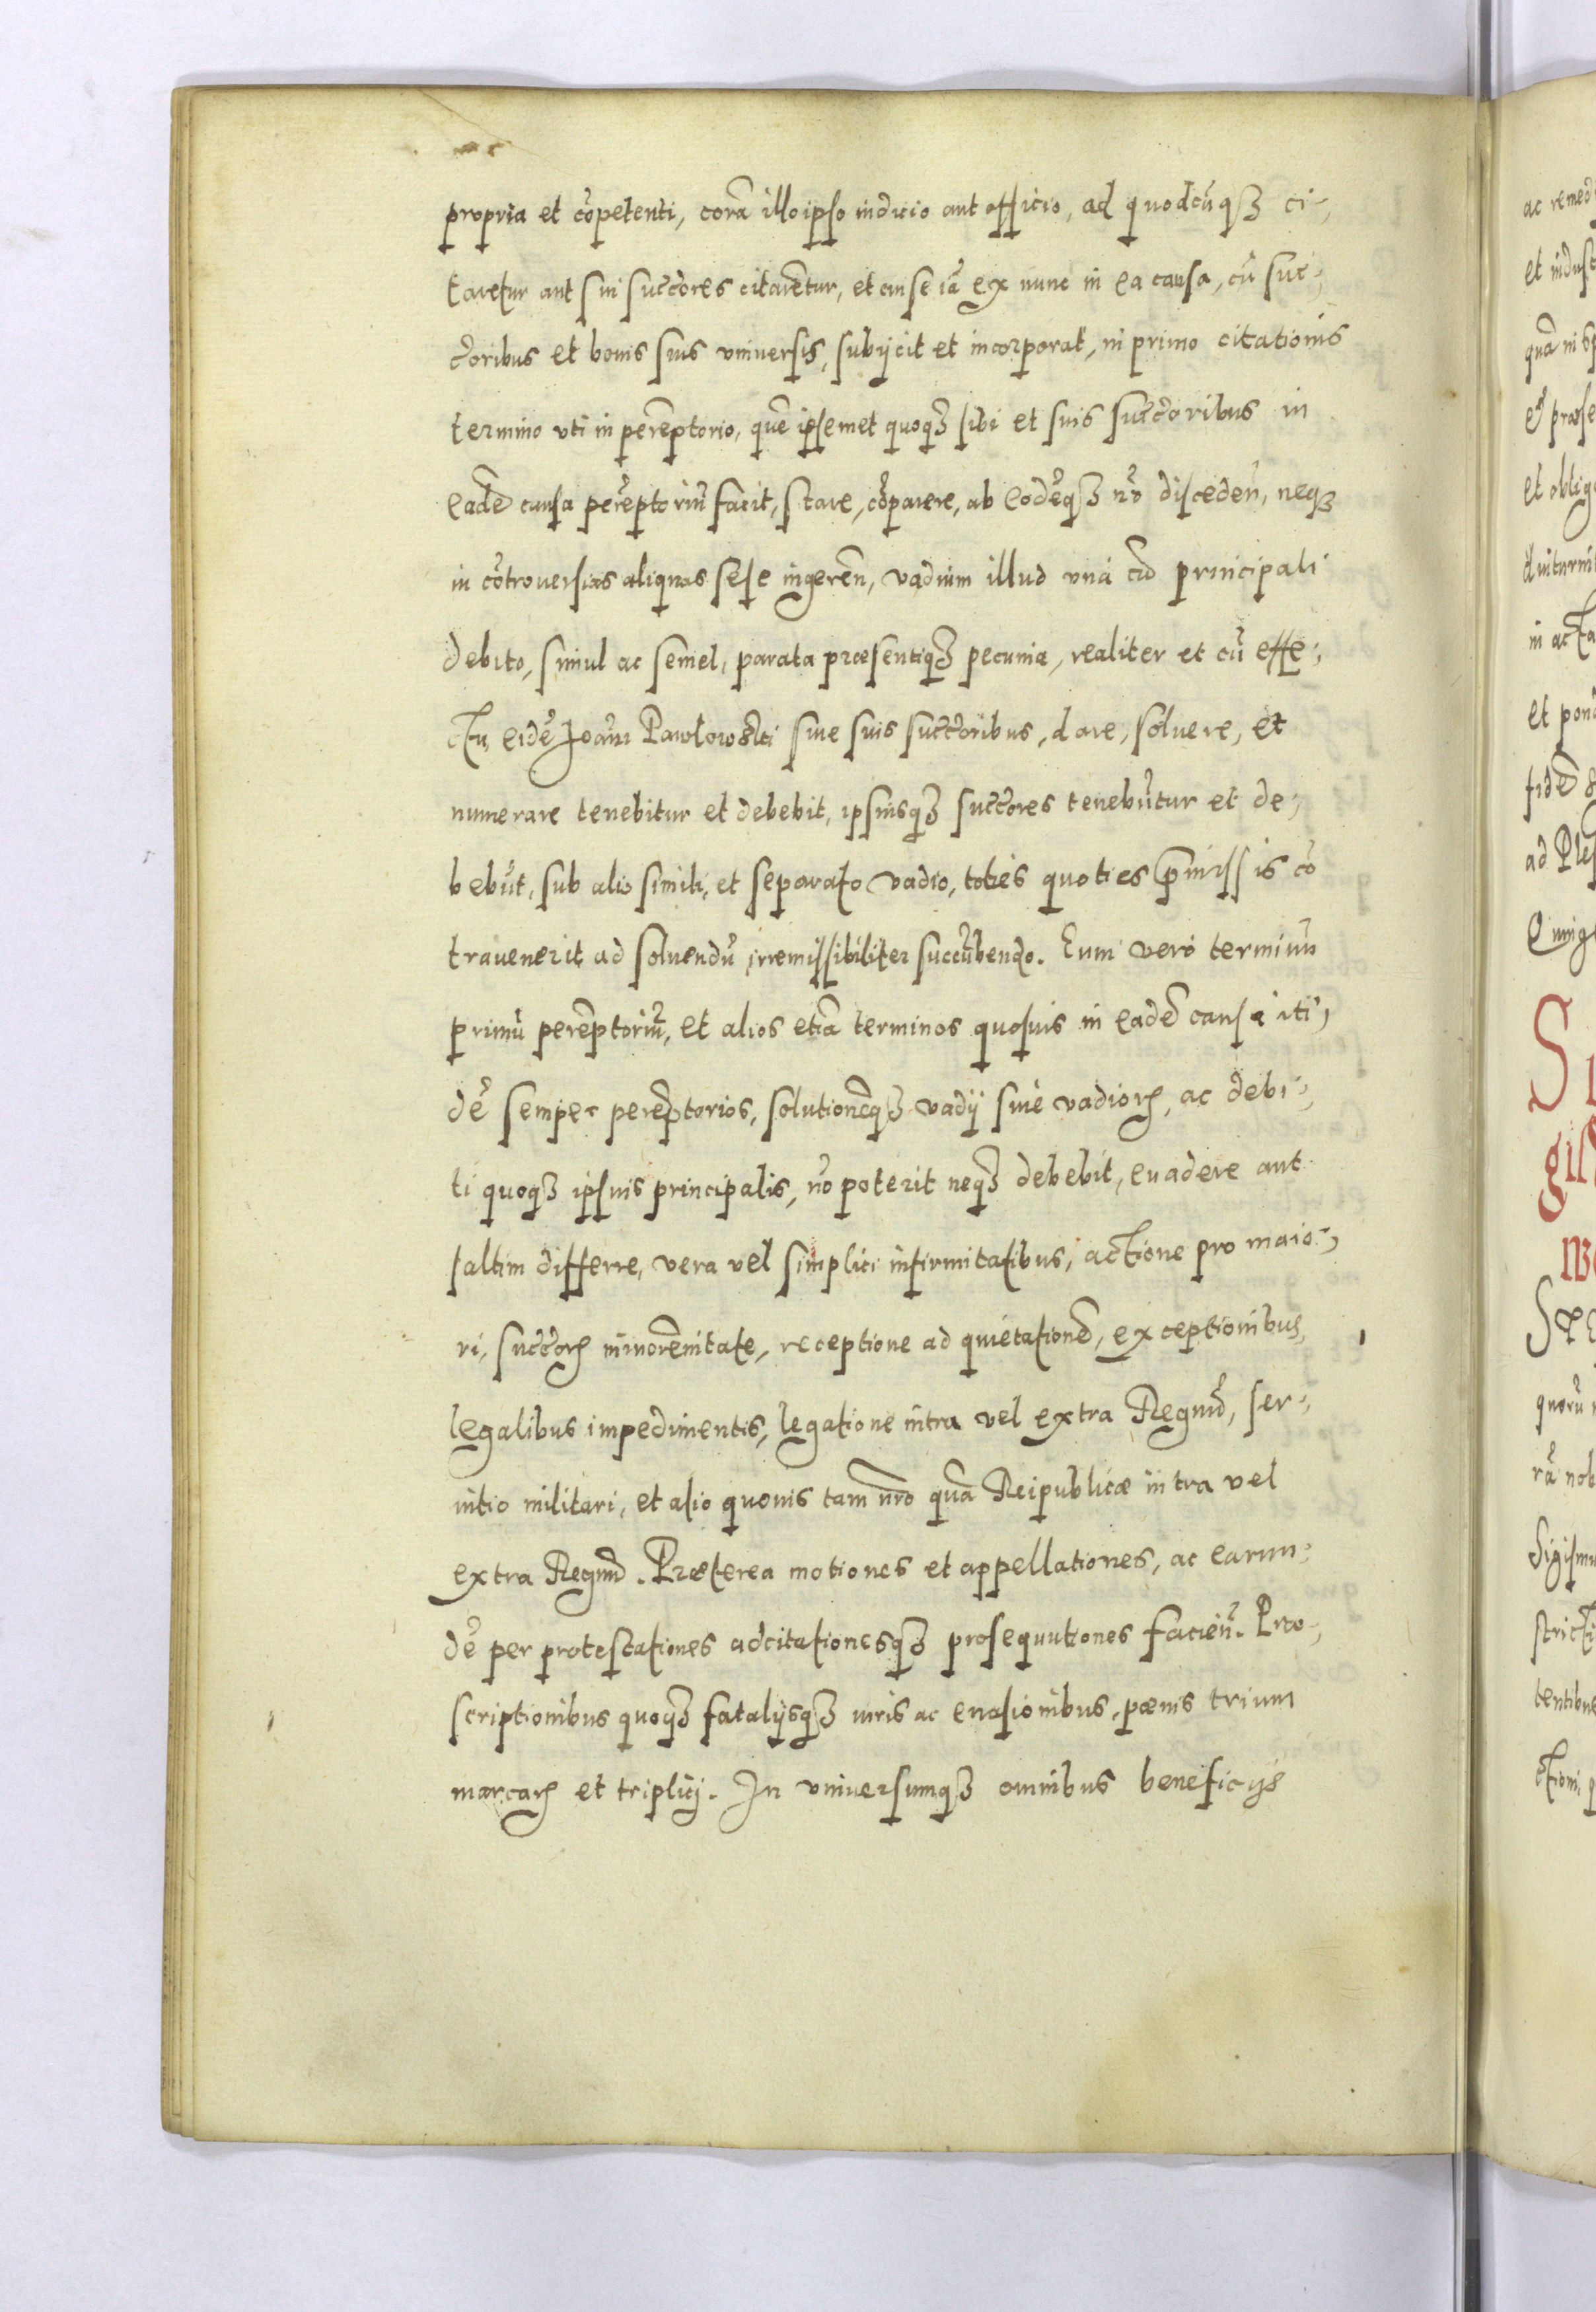 propria et cõpetenti, corã illo ipso iudicio aut officio, ad quodcũqȝ ci-
taretur aut sui succ̃ores citarẽtur, et cui se iã ex nunc in ea causa, cũ suc-
c̃oribus et bonis suis vniuersis, subijcit et incorporat, in primo citationis
termino vti in perẽptorio, quẽ ipsemet quoqȝ sibi et suis succ̃oribus in
eadẽ causa perẽptoriũ facit, stare, cõparere, ab eodẽqȝ nõ disceden̄, neqȝ
in cõtrouersias aliquas sese ingerẽn, vadium illud vnà cũ principali
debito, simul ac semel, parata præsentiqȝ pecunia, realiter et cũ effe-
ctu, eidẽ Joãni Pawlowski siue suis succ̃oribus, dare, soluere, et
numerare tenebitur et debebit, ipsiusqȝ succ̃ores tenebũtur et de-
bebũt, sub alio simili, et separato vadio, toties quoties p̃missis cõ
trauenerit ad soluendũ irremissibiliter succũbendo. Eum verò terminũ
primũ perẽptoriũ, et alios etiã terminos quosuis in eadẽ causa iti-
dẽ semper perẽptorios, solutionẽqȝ vadij siuè vadiorꝝ, ac debi-
ti quoqȝ ipsuis principalis, nõ poterit neqȝ debebit, euadere aut
saltim differre, vera vel simplici infirmitatibus, actione pro maio-
ri, succ̃orꝝ minorẽnitate, receptione ad quietationẽ, exceptionibus,
legalibus impedimentis, legatione intra vel extra Regnũ, ser-
uitio militari, et alio quouis tam nr̃o quã Reipublicæ intra vel
extra Regnũ. Præterea motiones et appellationes, ac earun-
dẽ per protestationes adcitationesqȝ prosequutiones facien̄. Pro-
scriptionibus quoqȝ fatalijsqȝ iuris ac euasionibus, pœnis trium
marcarꝝ et triplicij. In vniuersumqȝ omnibus beneficijs